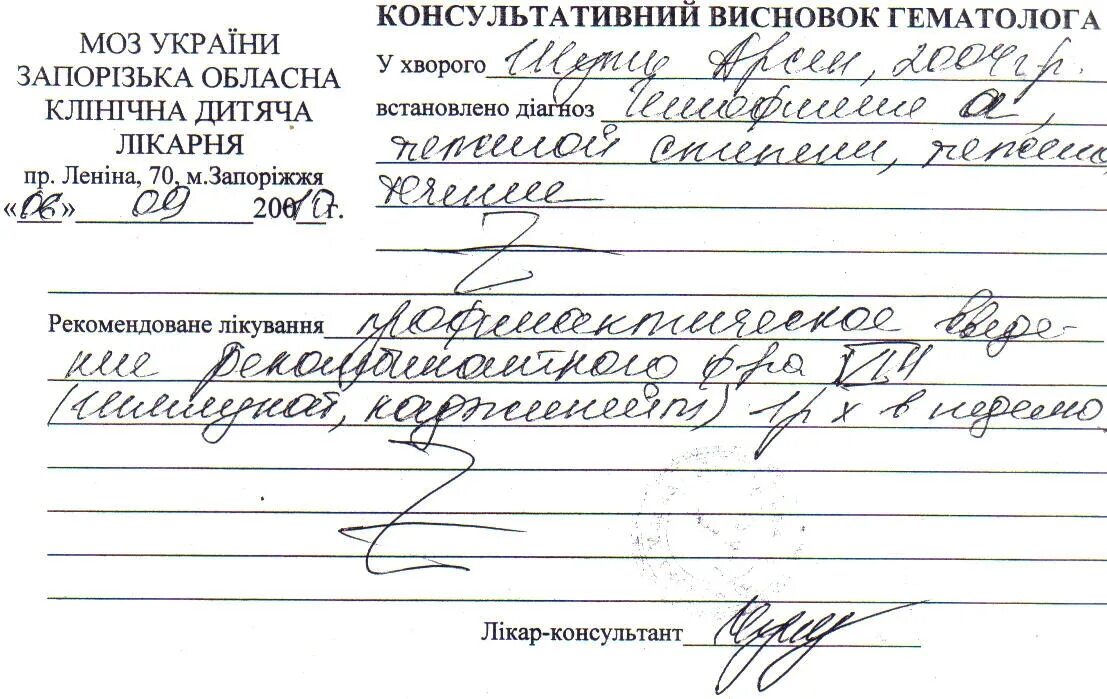 МОЗ УКРАЇНИ
ЗАПОРІЗЬКА ОБЛАСНА
КЛІНІЧНА ДИТЯЧА
ЛІКАРНЯ
пр. Леніна, 70, м.Запоріжжя
«06» 09 2010г.
КОНСУЛЬТАТИВНИЙ ВИСНОВОК ГЕМАТОЛОГА
У хворого Арсен, 2004 г.р.
встановлено діагноз Гемофилия А,
тяжелой степени, тяжелое
течение
Рекомендоване лікування профилактическое введе-
ние рекомбинантного ф-ра VIII
(иммунат, ) 1р х в неделю
Лікар-консультант